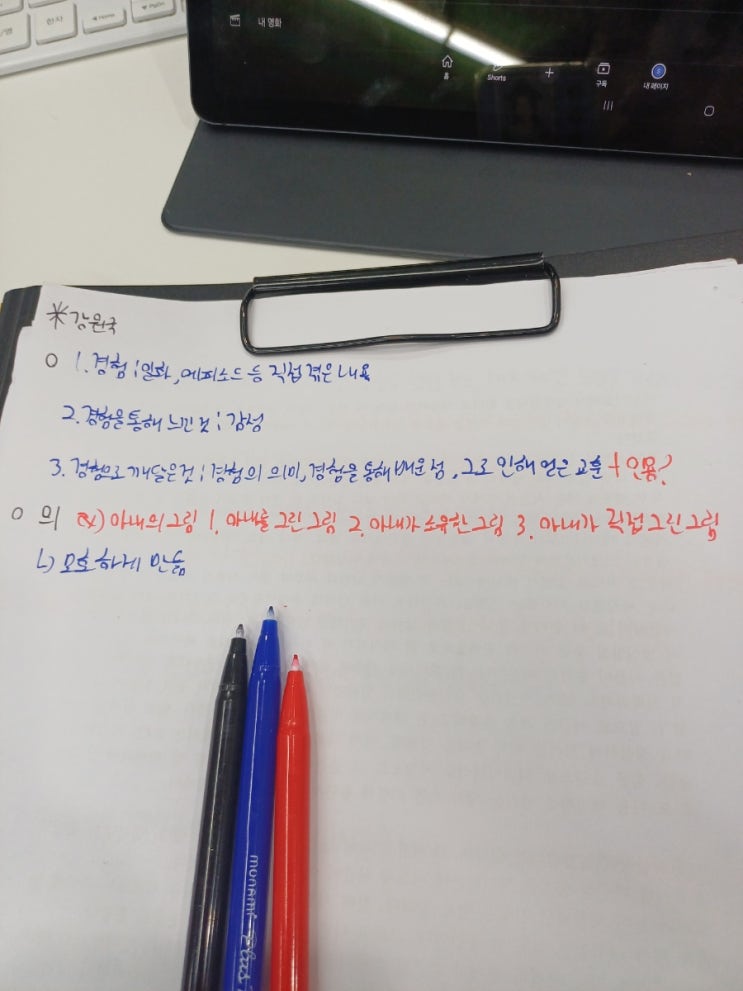 한자
Home
PgDn
내 영화
홈
Shorts
구독
내 페이지
*강원국
○ 1. 경험 : 일화, 에피소드 등 직접 겪은 내용
2. 경험을 통해 느낀 것 : 감성
3. 경험으로 깨달은 것 : 경험의 의미, 경험을 통해 배운 점, 그로 인해 얻은 교훈 + 인용?
○ 의 ex) 아내의 그림 1. 아내를 그린 그림 2. 아내가 소유한 그림 3. 아내가 직접 그린 그림
↳ 모호하게 만듦
monami Plus